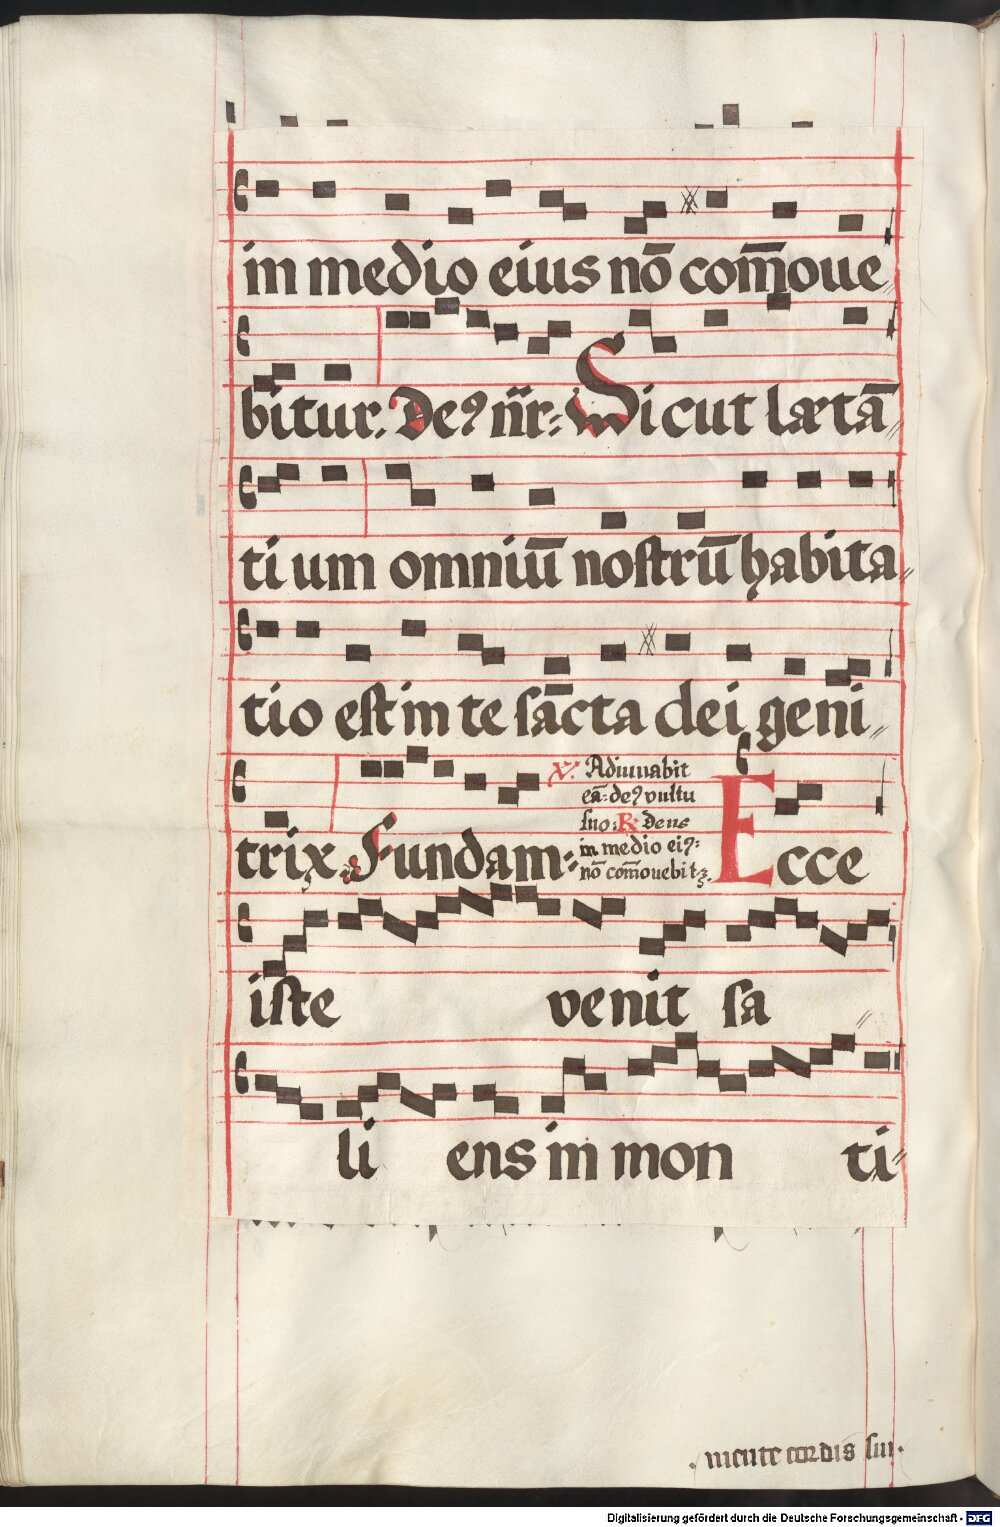 in medio eius nō com̄oue
bitur. Deꝰ nr̄: Sicut lætā
ti um omniū nostrū habita
tio est in te sācta dei geni
℣. Adiuuabit
eā: deꝰ vultu
suo: ℟. Deus
in medio eiꝰ:
nō com̄ouebitꝫ.
trix. Fundam: Ecce
iste venit sa
li ens in mon ti
. mente cordis sui.
Digitalisierung gefördert durch die Deutsche Forschungsgemeinschaft - DFG